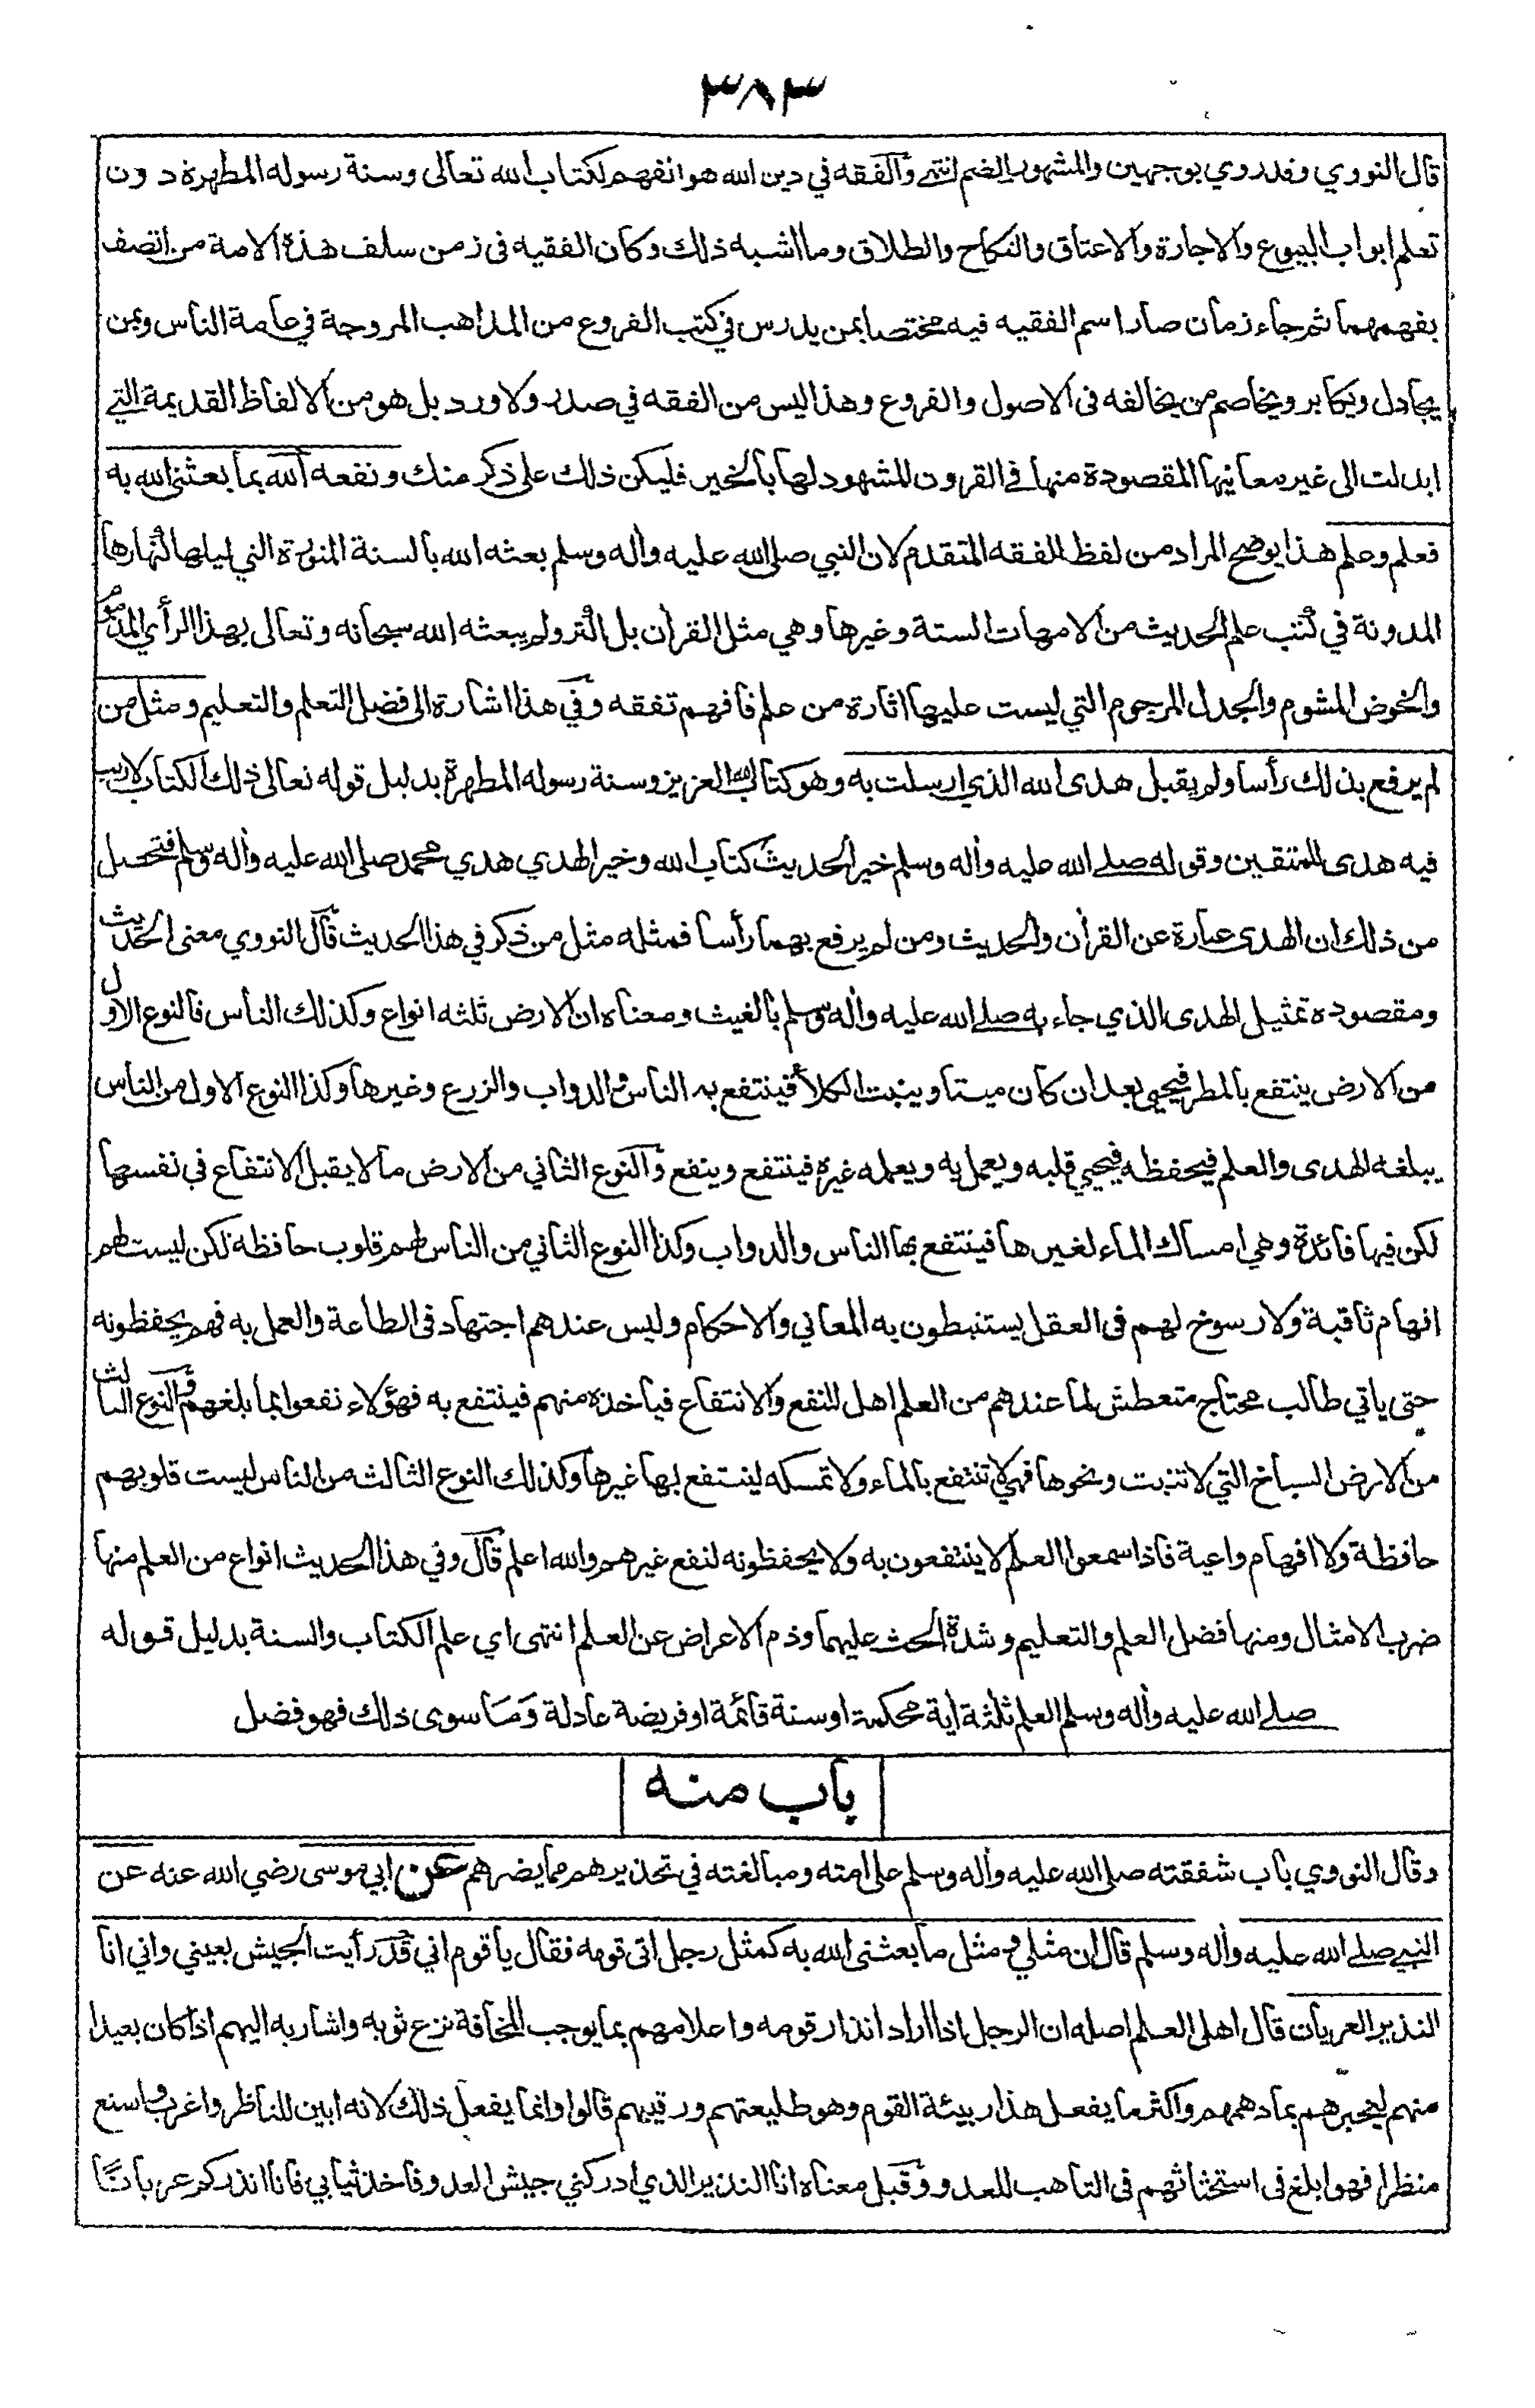 ٣٨٣
قال النووي وقد روي بوجهين والمشهور الضم انتهى والفقه في دين الله هو انفهم لكتاب الله تعالى وسنة رسوله المطهرة دون
تعلم ابواب البيوع والاجارة والاعتاق والنكاح والطلاق وما اشبه ذلك وكان الفقيه في زمن سلف هذه الامة من اتصف
بفهمهما ثم جاء زمان صار اسم الفقيه فيه مختصا بمن يدرس في كتب الفروع من المذاهب المروجة في عامة الناس وبمن
يجادل ويكابر ويخاصم من يخالفه في الاصول والفروع وهذا ليس من الفقه في صدر ولا ورد بل هو من الالفاظ القديمة التي
ابدلت الى غير معانيها المقصودة منها في القرون المشهود لها بالخير فليكن ذلك على ذكر منك ونفعه الله بما بعثني الله به
فعلم وعلم هذا يوضح المراد من لفظ الفقه المتقدم لان النبي صلى الله عليه واٰله وسلم بعثه الله بالسنة المنورة التي ليلها كنهارها
المدونة في كتب علم الحديث من الامهات الستة وغيرها وهي مثل القراٰن بل اكثر ولم يبعثه الله سبحانه وتعالى بهذا الرأي المذموم
والخوض المشوم والجدل المرجوم التي ليست عليها اثارة من علم فافهم تفقه وفي هذا اشارة الى فضل التعلم والتعليم ومثل من
لم يرفع بذلك رأسا ولم يقبل هدى الله الذي ارسلت به وهو كتاب الله العزيز وسنة رسوله المطهرة بدليل قوله تعالى ذلك الكتاب لا ريب
فيه هدى للمتقين وقوله صلى الله عليه واٰله وسلم خير الحديث كتاب الله وخير الهدي هدي محمد صلى الله عليه واٰله وسلم فتحصل
من ذلك ان الهدى عبارة عن القراٰن والحديث ومن لم يرفع بهما رأسا فمثله مثل من ذكر في هذا الحديث قال النووي معنى الحديث
ومقصوده تمثيل الهدى الذي جاء به صلى الله عليه واٰله وسلم بالغيث ومعناه ان الارض ثلثه انواع وكذلك الناس فالنوع الاول
من الارض ينتفع بالمطر فيحيى بعد ان كان ميتا وينبت الكلأ فينتفع به الناس والدواب والزرع وغيرها وكذا النوع الاول من الناس
يبلغه الهدى والعلم فيحفظه فيحيي قلبه ويعمل به ويعلمه غيره فينتفع وينفع والنوع الثاني من الارض ما لا يقبل الانتفاع في نفسها
لكن فيها فائدة وهي امساك الماء لغيرها فينتفع بها الناس والدواب وكذا النوع الثاني من الناس لهم قلوب حافظة لكن ليست لهم
افهام ثاقبة ولا رسوخ لهم في العقل يستنبطون به المعاني والاحكام وليس عندهم اجتهاد في الطاعة والعمل به فهم يحفظونه
حتى ياتي طالب محتاج متعطش لما عندهم من العلم اهل للنفع والانتفاع فياخذه منهم فينتفع به فهؤلاء نفعوا بما بلغهم والنوع الثالث
من الارض السباخ التي لا تنبت ونحوها فهي لا تنتفع بالماء ولا تمسكه لينتفع بها غيرها وكذلك النوع الثالث من الناس ليست قلوبهم
حافظة ولا افهام واعية فاذا سمعوا العلم لا ينتفعون به ولا يحفظونه لنفع غيرهم والله اعلم قال وفي هذا الحديث انواع من العلم منها
ضرب الامثال ومنها فضل العلم والتعليم وشدة الحث عليهما وذم الاعراض عن العلم انتهى اي علم الكتاب والسنة بدليل قوله
صلى الله عليه واٰله وسلم العلم ثلثة اٰية محكمة او سنة قائمة او فريضة عادلة وما سوى ذلك فهو فضل
باب منه
وقال النووي باب شفقته صلى الله عليه واٰله وسلم على امته ومبالغته في تحذيرهم مما يضرهم عن ابي موسى رضي الله عنه عن
النبي صلى الله عليه واٰله وسلم قال ان مثلي ومثل ما بعثني الله به كمثل رجل اتى قومه فقال يا قوم اني قد رأيت الجيش بعيني واني انا
النذير العريان قال اهل العلم اصله ان الرجل اذا اراد انذار قومه واعلامهم بما يوجب المخافة نزع ثوبه واشار به اليهم اذا كان بعيدا
منهم ليخبرهم بما دهمهم واكثر ما يفعل هذا ربيئة القوم وهو طليعتهم ورقيبهم قالوا وانما يفعل ذلك لانه ابين للناظر واغرب واشنع
منظرا فهو ابلغ في استحثاثهم في التاهب للعدو وقيل معناه انا النذير الذي ادركني جيش العدو فاخذ ثيابي فانا انذركم عريانًا